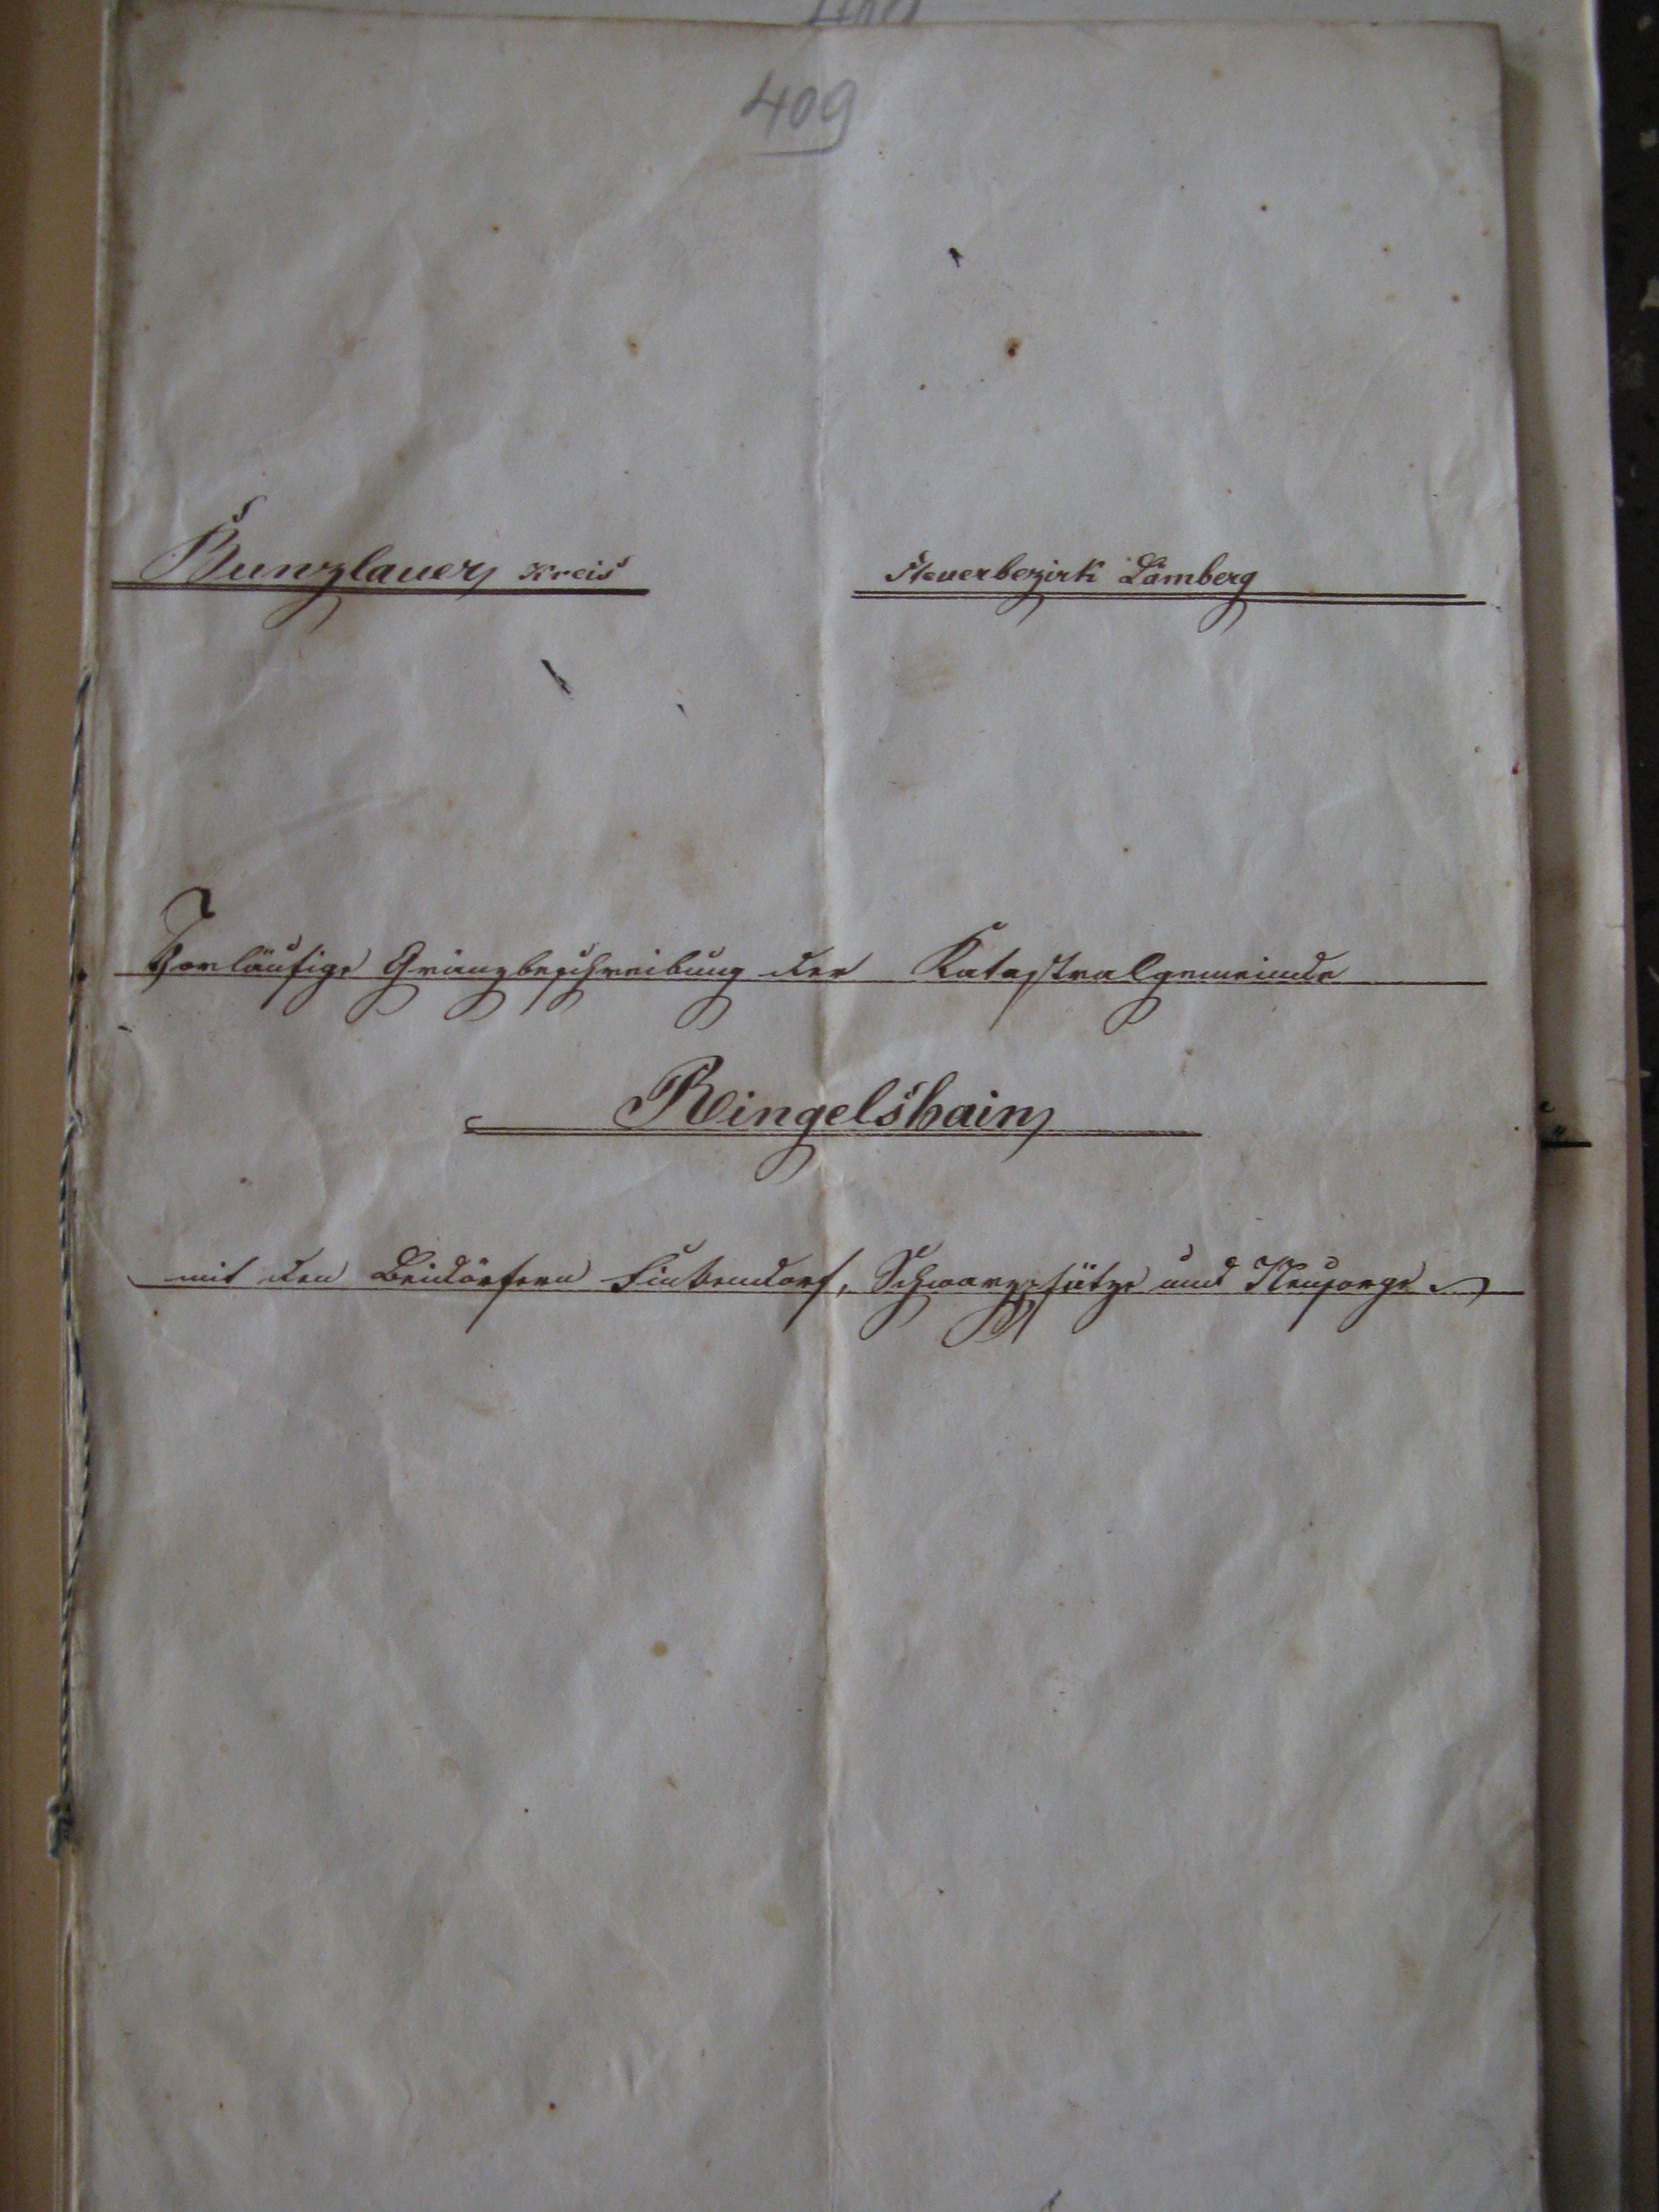 409
Bunzlauer Kreis
Steuerbezirk Lämberg
Vorläufige Gränzbeschreibung der Katastralgemeinde
Ringelshain
mit den Beidörfern Finkendorf, Schwarzpfütze und Neusorge